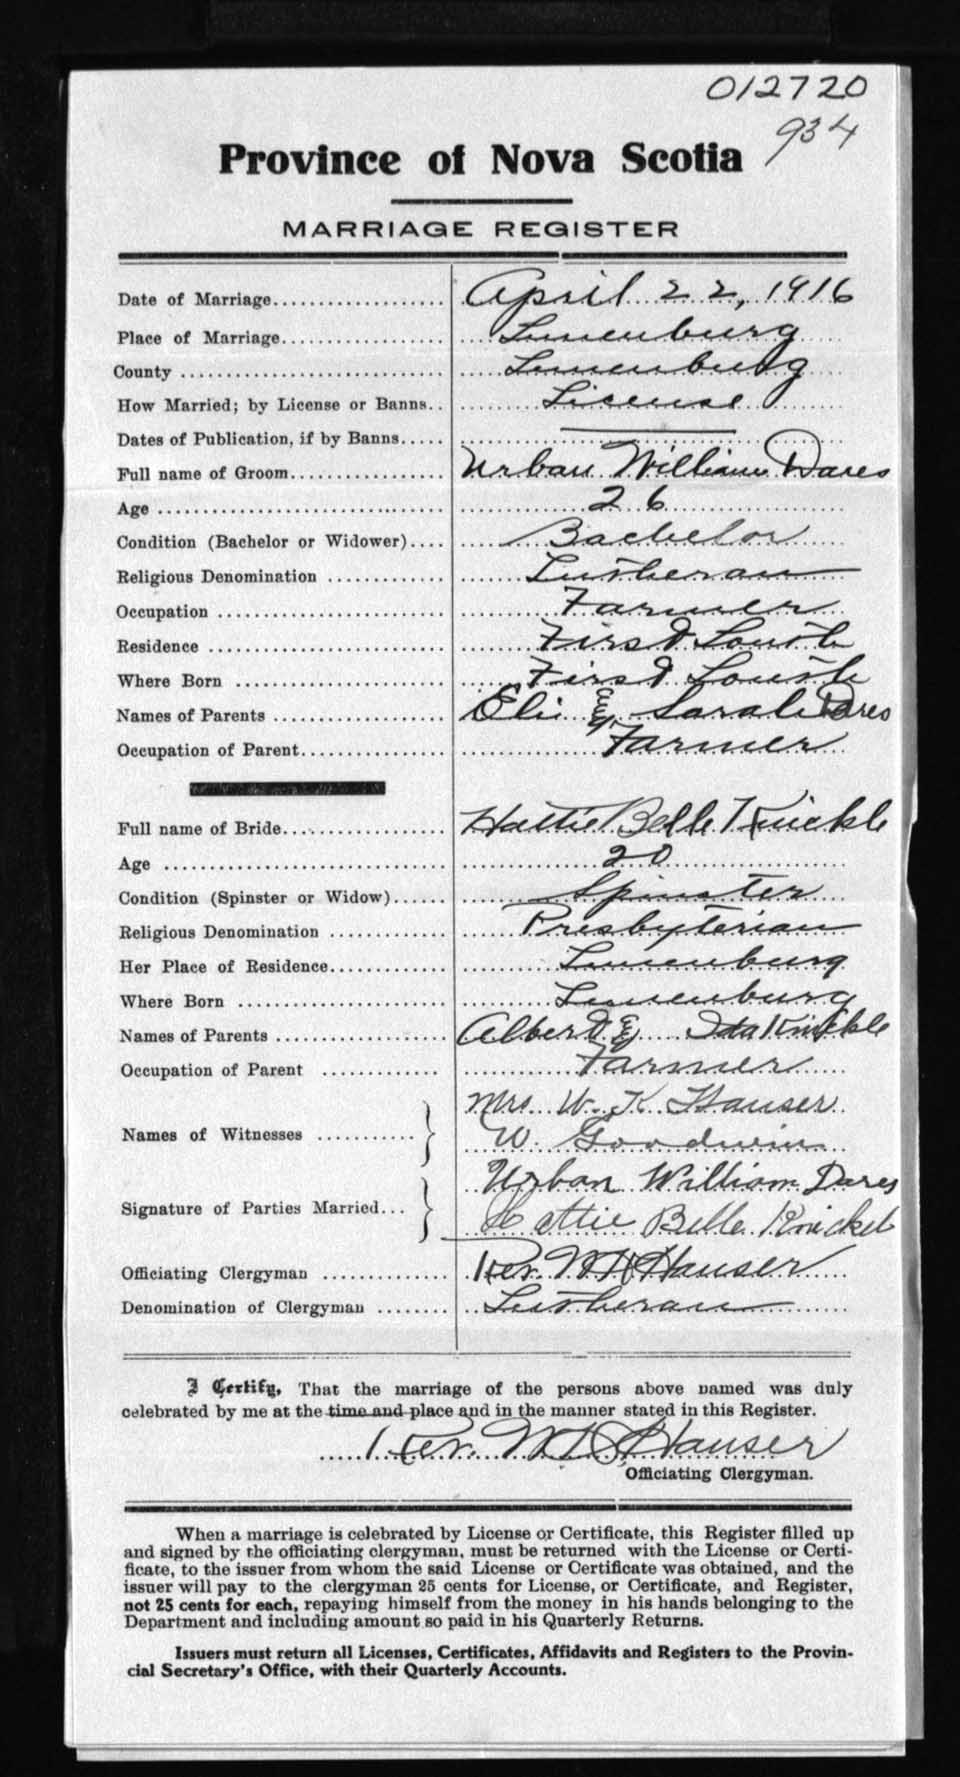 012720
934
Province of Nova Scotia
MARRIAGE REGISTER
Date of Marriage.................... April 22, 1916
Place of Marriage................... Lunenburg
County ............................ Lunenburg
How Married; by License or Banns.. License
Dates of Publication, if by Banns.....
Full name of Groom.................. Urban William Dares
Age ............................... 26
Condition (Bachelor or Widower).... Bachelor
Religious Denomination ............. Lutheran
Occupation ........................ Farmer
Residence ......................... First South
Where Born ....................... First South
Names of Parents ................... Eli & Sarah Dares
Occupation of Parent................ Farmer
Full name of Bride.................. Hattie Belle Knickle
Age ............................... 20
Condition (Spinster or Widow)...... Spinster
Religious Denomination ............. Presbyterian
Her Place of Residence............. Lunenburg
Where Born ....................... Lunenburg
Names of Parents ................... Albert & Ida Knickle
Occupation of Parent ............. Farmer
Names of Witnesses ........... } Mrs W. K Hauser
W. Goodwin
Signature of Parties Married... } Urban William Dares
Hattie Belle Knickel
Officiating Clergyman ............. Rev. Hauser
Denomination of Clergyman ........ Lutheran
I Certify, That the marriage of the persons above named was duly
celebrated by me at the time and place and in the manner stated in this Register.
Rev. Hauser
Officiating Clergyman.
When a marriage is celebrated by License or Certificate, this Register filled up
and signed by the officiating clergyman, must be returned with the License or Certi-
ficate, to the issuer from whom the said License or Certificate was obtained, and the
issuer will pay to the clergyman 25 cents for License, or Certificate, and Register,
not 25 cents for each, repaying himself from the money in his hands belonging to the
Department and including amount so paid in his Quarterly Returns.
Issuers must return all Licenses, Certificates, Affidavits and Registers to the Provin-
cial Secretary's Office, with their Quarterly Accounts.